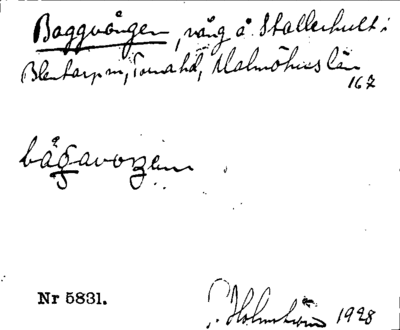 Baggvången, vång å Stallerhult i
Blentarp sn, Torna hd, Malmöhus län
167
bågavoŋen
Nr 5831.
P. Holmström 1928